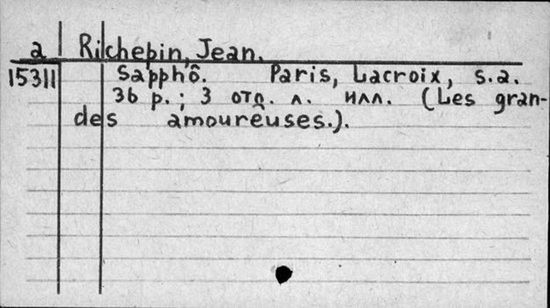 a Richepin, Jean.
15311 Sapphô. Paris, Lacroix, s.a.
36 p.; 3 отд. л. илл. (Les gran-
des amoureuses.).